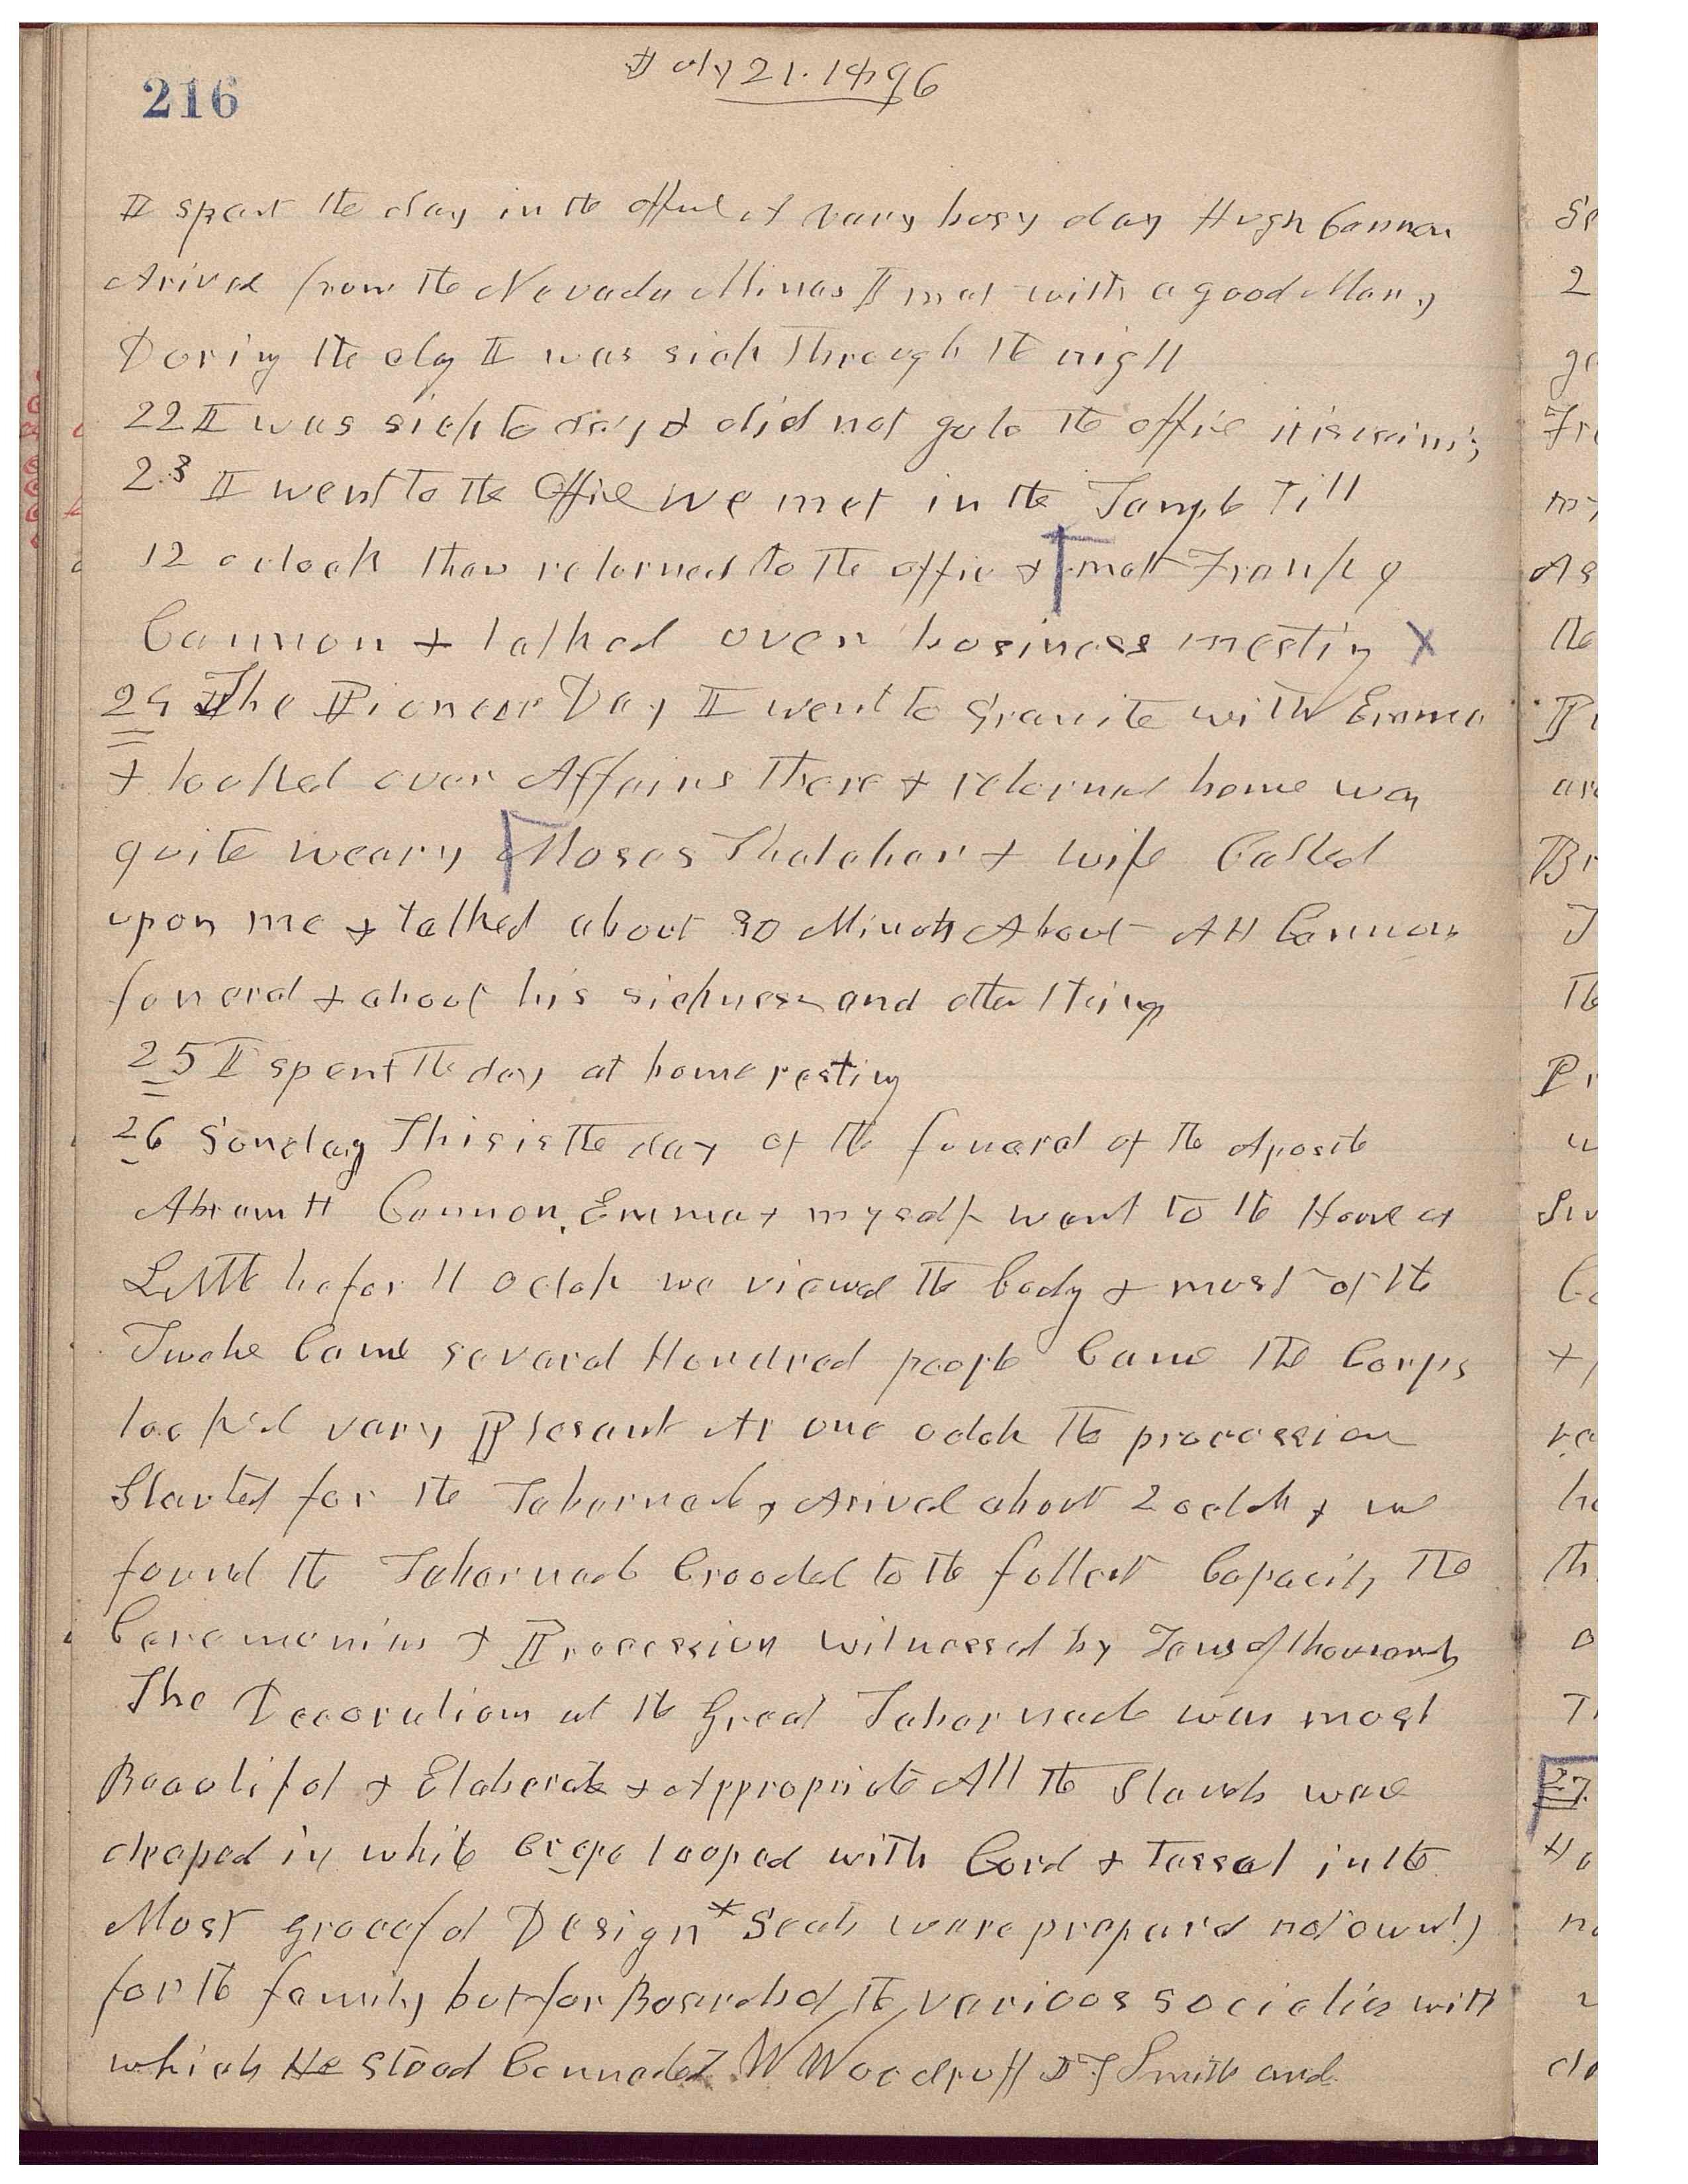 216
July 21. 1896
I spent the day in the office A vary busy day Hugh Cannon
Arived from the Nevada Mines I met with a good Many
During the dy I was sick through the night
22 I was sick to day & did not go to the office it is raining
23 I went to the Office we met in the Temple Till
12 oclock then returned to the office & met Frank J
Cannon & talked over business meeting X
24 The Pioneer Day I went to Granite with Emma
& looked over Affairs there & returned home was
quite weary Moses Thatcher & wife Called
upon me & talked about 30 Minuts About AH Cannon
funeral & about his sickness and other things
25 I spent the day at home resting
26 Sunday This is the day of the funeral of the Apostle
Abram H Cannon, Emma & myself went to the House at
Little befor 11 oclok we viewed the body & most of the
Twelve Came several Hundred people Came the Corps
looked vary Plesant At one oclok the procession
Started for the Tabernacle, Arived about 2 oclok & we
found the Tabernacle Crouded to the fullest Capacity The
Ceremonies & Procession witnessed by Tens of thousands
The Decorations at the Great Tabernacle was most
Beautiful & Elaborate & Appropriate All the Stands ware
draped in white crepe looped with Cord & Tassel in the
Most graceful Design * Seats ware prepared not ownly
for the family but for Boards of the various societies with
which He stood Connected W Woodruff J F Smith and
27.